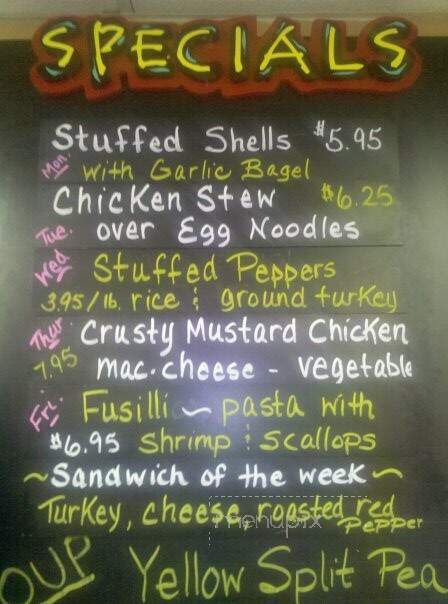 SPECIALS
Stuffed Shells $5.95
Mon. with Garlic Bagel
Chicken Stew $6.25
Tue. over Egg Noodles
Wed Stuffed Peppers
3.95/lb. rice & ground turkey
Thur Crusty Mustard Chicken
7.95 mac.cheese - vegetable
Fri. Fusilli ~ pasta with
$6.95 shrimp & scallops
~Sandwich of the week~
Turkey, cheese, roasted red
Pepper
menupix
OUP Yellow Split Pea